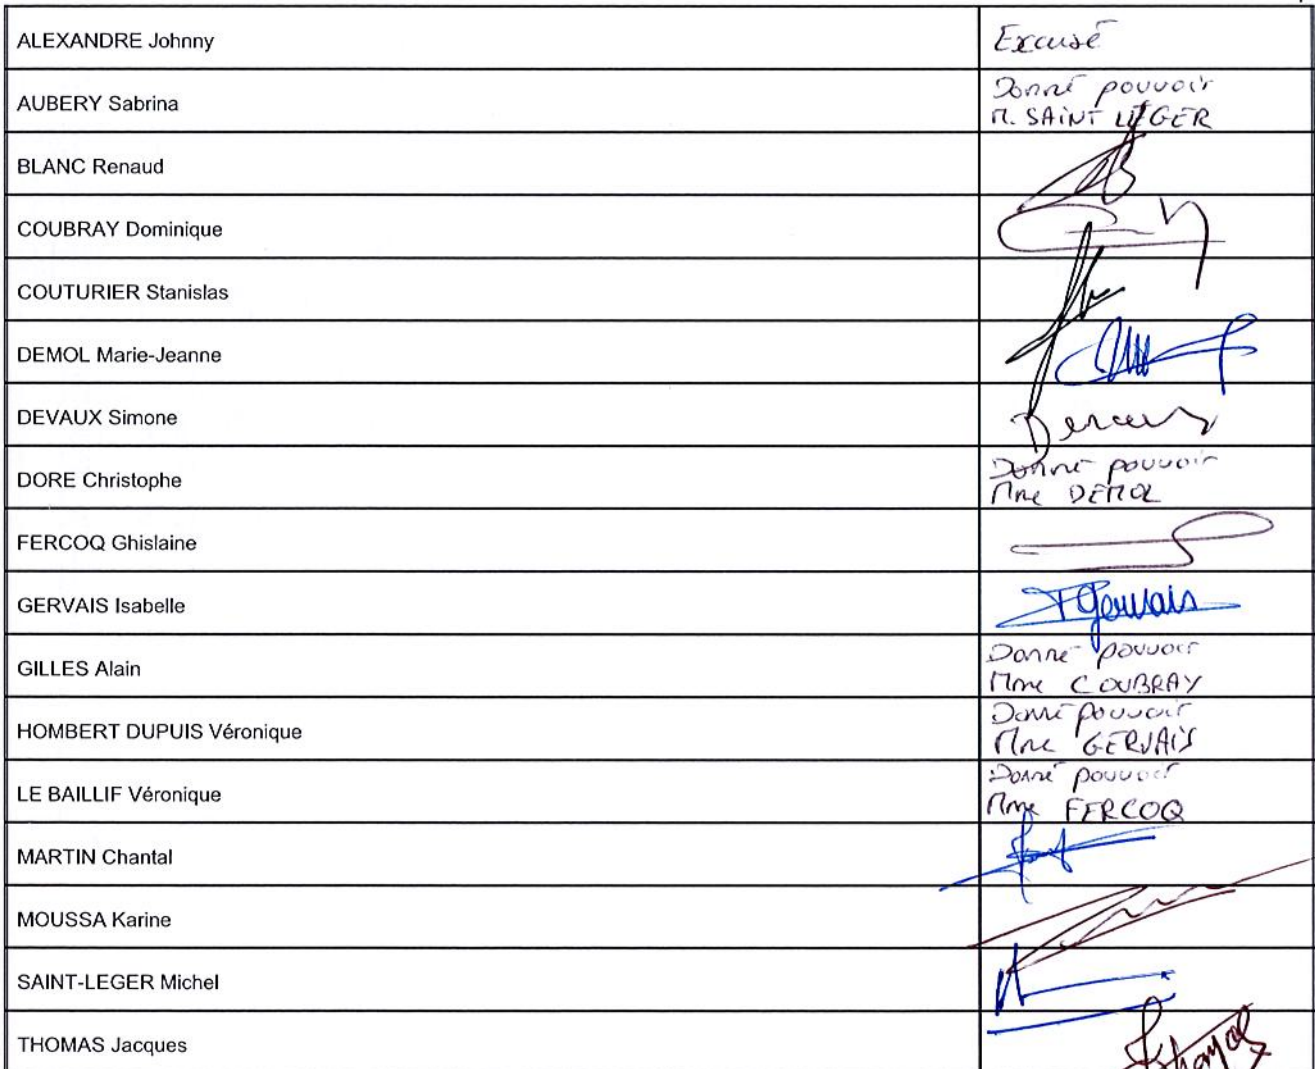 ALEXANDRE Johnny
Excusé
AUBERY Sabrina
Donné pouvoir
M. SAINT LEGER
BLANC Renaud
COUBRAY Dominique
COUTURIER Stanislas
DEMOL Marie-Jeanne
DEVAUX Simone
DORE Christophe
Donné pouvoir
Mme DEMOL
FERCOQ Ghislaine
GERVAIS Isabelle
Gervais
GILLES Alain
Donné pouvoir
Mme COUBRAY
HOMBERT DUPUIS Véronique
Donné pouvoir
Mme GERVAIS
LE BAILLIF Véronique
Donné pouvoir
Mme FERCOQ
MARTIN Chantal
MOUSSA Karine
SAINT-LEGER Michel
THOMAS Jacques